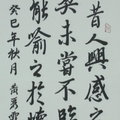 昔人興感之
契未嘗不臨
能喻之於懷
癸巳年秋月